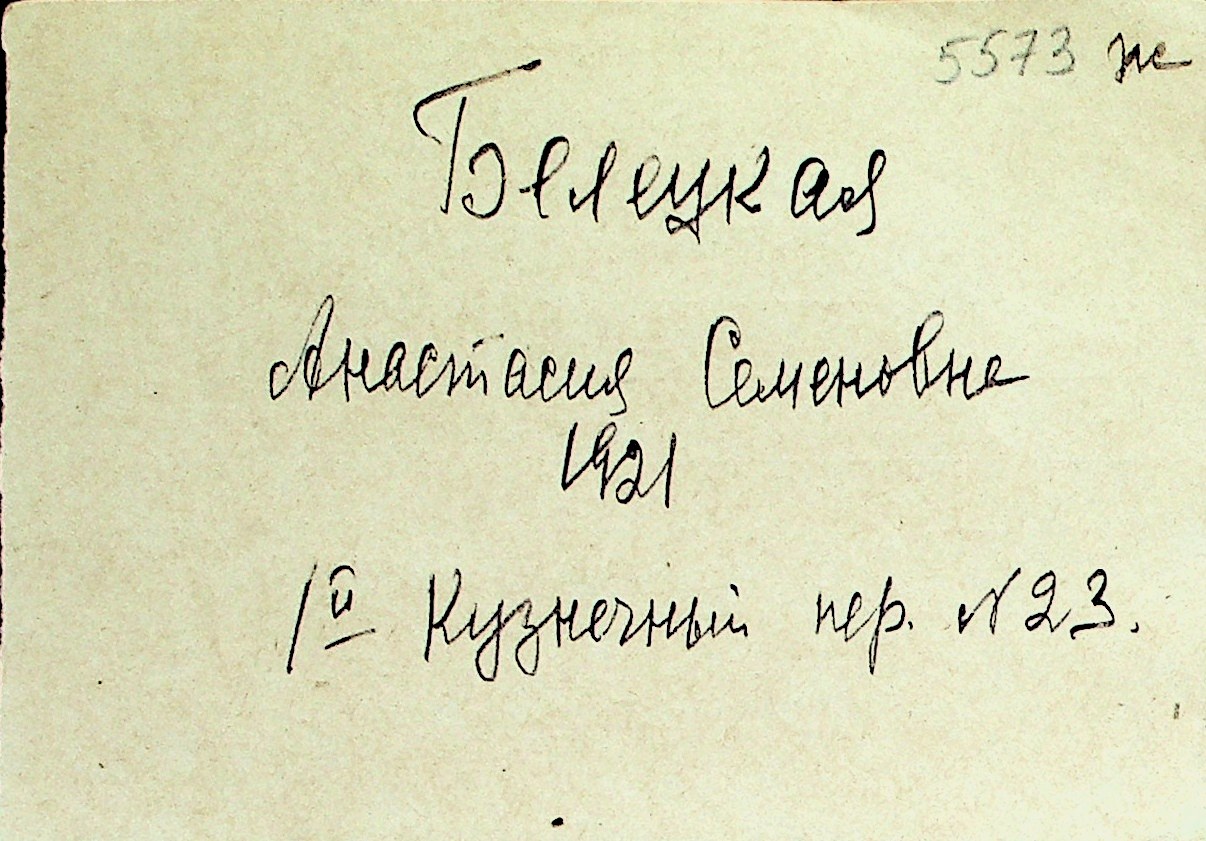 5573 ж
Белецкая
Анастасия Семеновна
1921
1й Кузнечный пер. N 23.